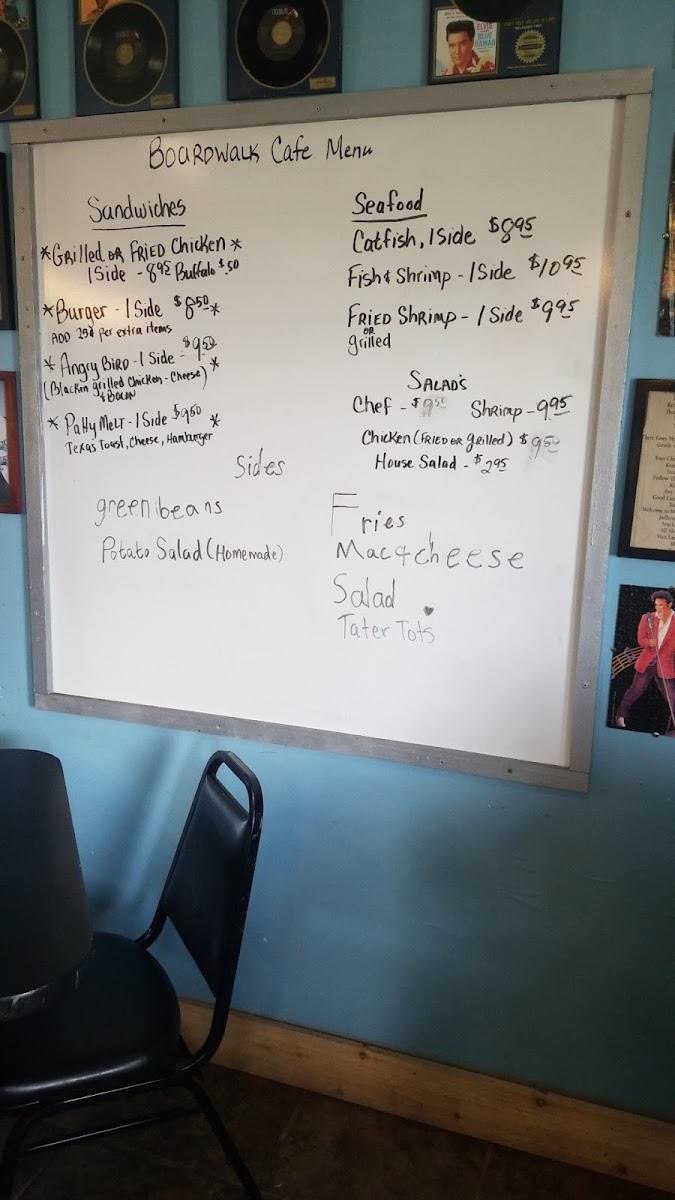 BOARDWALK Cafe Menu
Sandwiches
*Grilled OR FRIED Chicken *
1 Side - 8.95 Buffalo $.50
*Burger - 1 Side $8.50 *
ADD 25¢ per extra items
* Angry BIRD - 1 Side - $9.50 *
(Blacken grilled Chicken - Cheese)
& BACON
* Patty Melt - 1 Side $9.50 *
Texas Toast, Cheese, Hamburger
Seafood
Catfish, 1 Side $8.95
Fish & Shrimp - 1 Side $10.95
FRIED Shrimp - 1 Side $9.95
OR
grilled
SALAD'S
Chef - $9.50 Shrimp - 9.95
Chicken (FRIED OR grilled) $9.50
House Salad - $2.95
Sides
green beans
Potato Salad (Homemade)
Fries
Mac & cheese
Salad
Tater Tots
ELVIS
BLUE
HAWAII